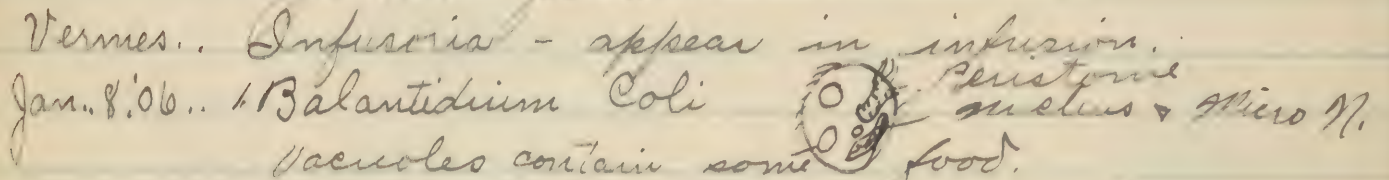 Vermes.. Infusoria - appear in infusion.
Jan. 8.'06.. 1. Balantidium Coli Peristome
nucleus & Micro N.
Vacuoles contain some food.